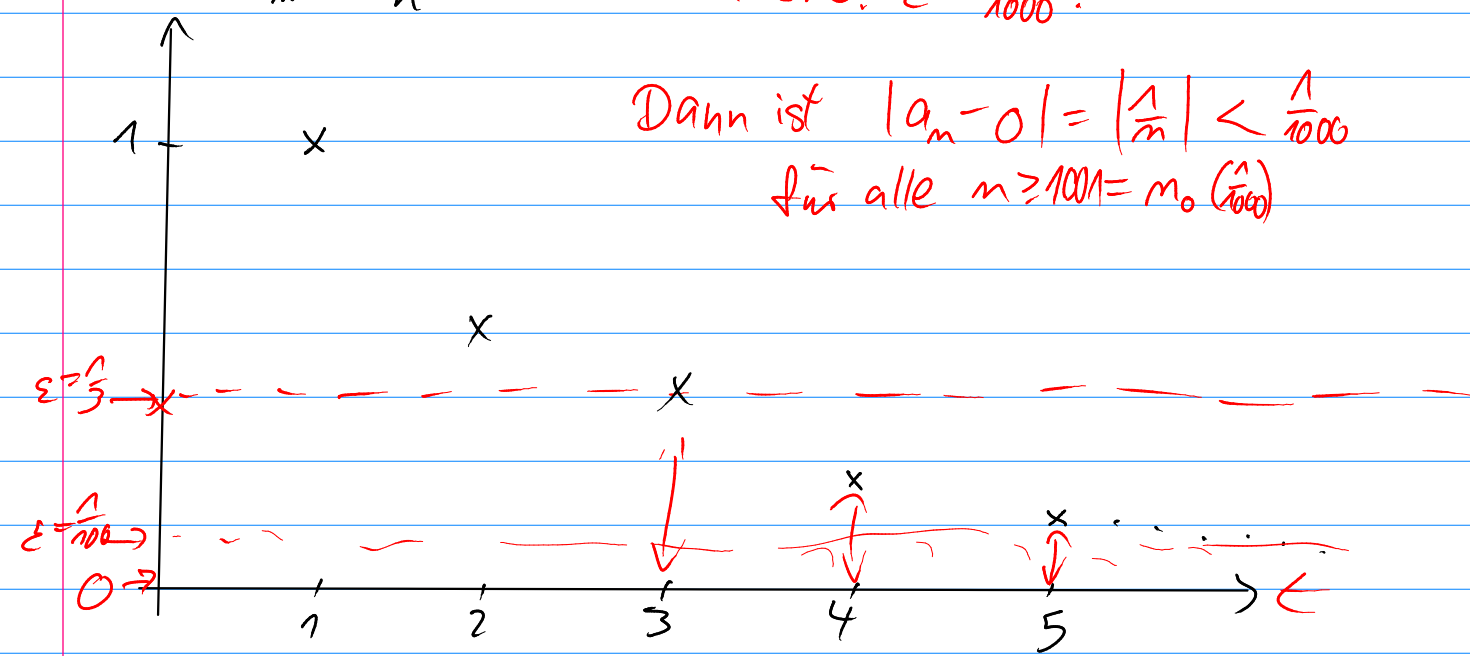 1000.
Dann ist |a_n - 0| = |1/n| < 1/1000
für alle n ≥ 1001 = n_0 (1/1000)
1
ε = 1/3
ε = 1/1000
0
1 2 3 4 5